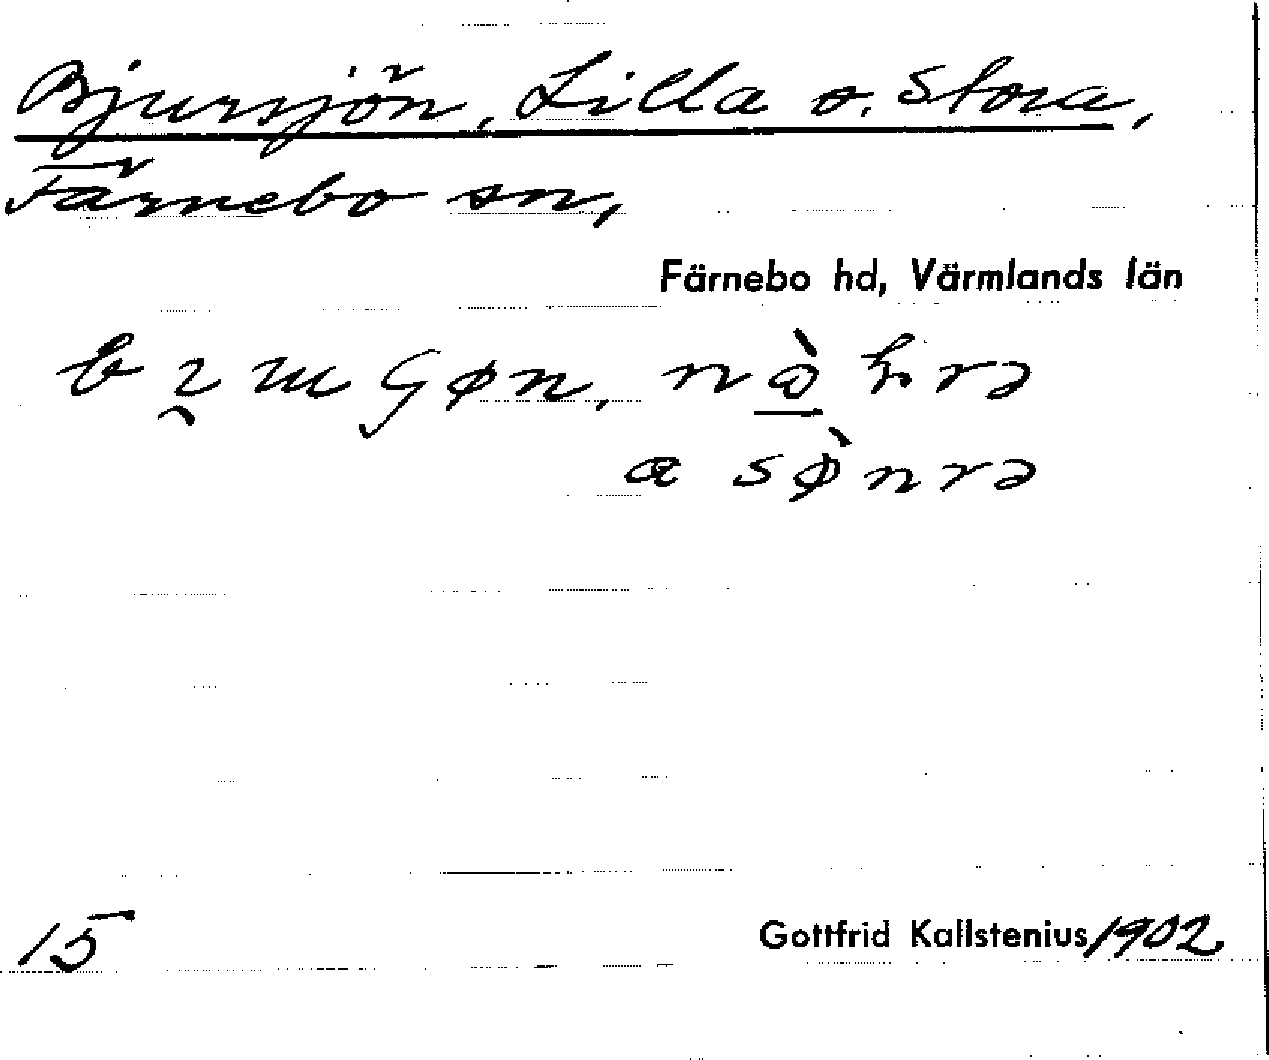 Bjursjön, Lilla o. Stora,
Färnebo sn,
Färnebo hd, Värmlands län
a sø̀nrə
15
Gottfrid Kallstenius 1902